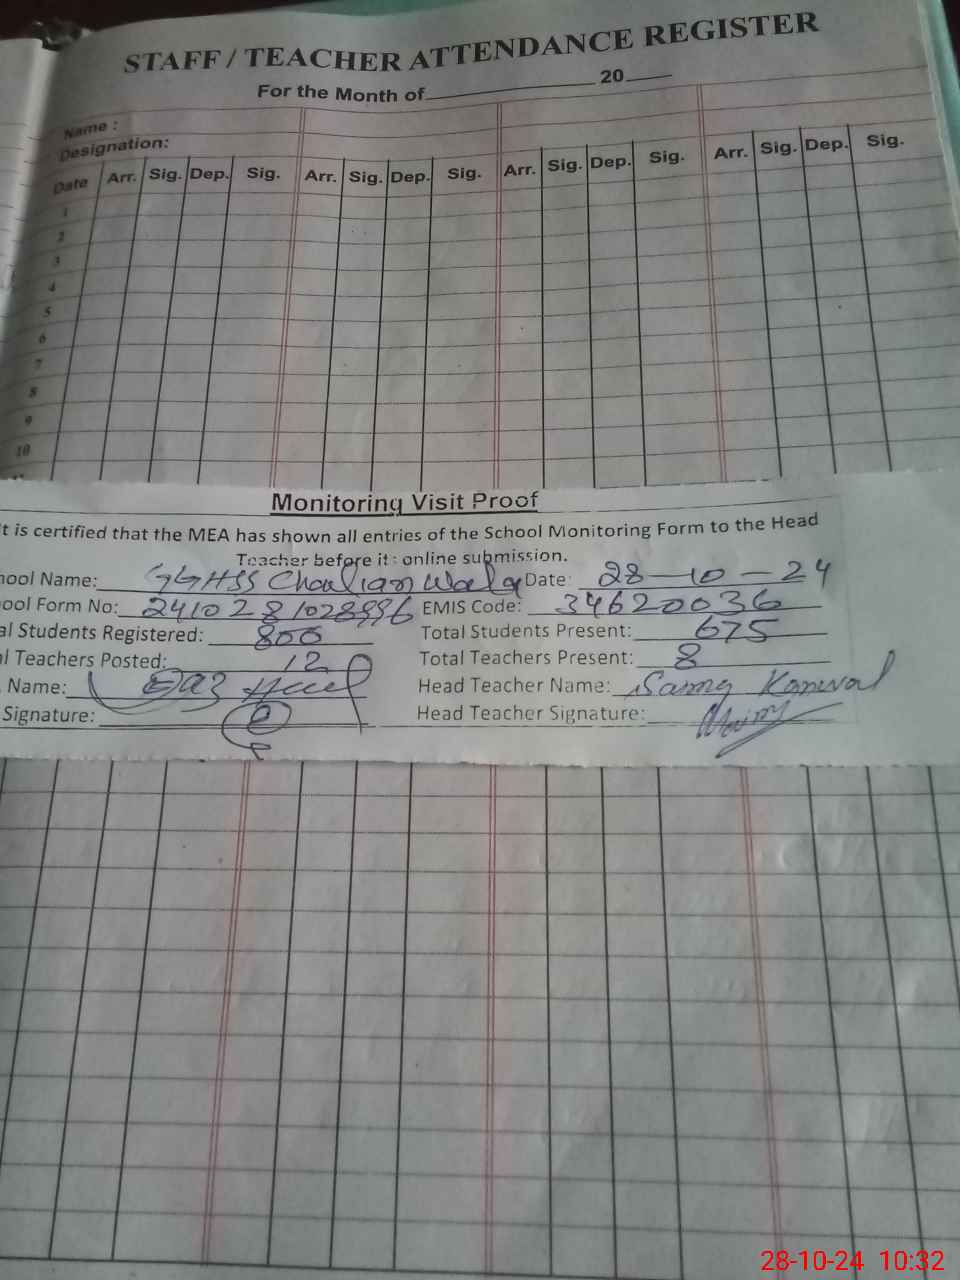 STAFF / TEACHER ATTENDANCE REGISTER
For the Month of 20
Name :
Designation:
Date Arr. Sig. Dep. Sig. Arr. Sig. Dep. Sig. Arr. Sig. Dep. Sig. Arr. Sig. Dep. Sig.
1
2
3
4
5
6
7
8
9
10
Monitoring Visit Proof
It is certified that the MEA has shown all entries of the School Monitoring Form to the Head
Teacher before it: online submission.
hool Name: GGHSS Chalian Wala Date: 28-10-24
ool Form No: EMIS Code: 34620036
al Students Registered: 800 Total Students Present: 675
l Teachers Posted: 12 Total Teachers Present: 8
Name: Head Teacher Name: Kanwal
Signature: Head Teacher Signature:
28-10-24 10:32